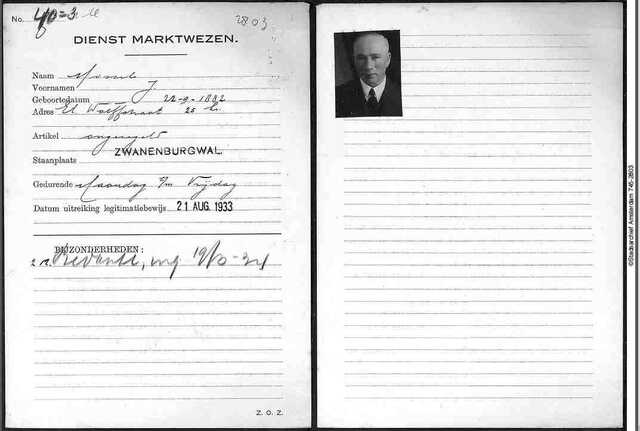 No. 40=3
2803
DIENST MARKTWEZEN.
Naam
Voornamen J
Geboortedatum 22-9-1882
Adres El. Wolffstraat 25
Artikel ongeregeld
ZWANENBURGWAL.
Staanplaats
Gedurende Maandag t/m Vrijdag
Datum uitreiking legitimatiebewijs 21 AUG. 1933
BIJZONDERHEDEN:
19/10-34
Z. O. Z.
©Stadsarchief Amsterdam 745-2803